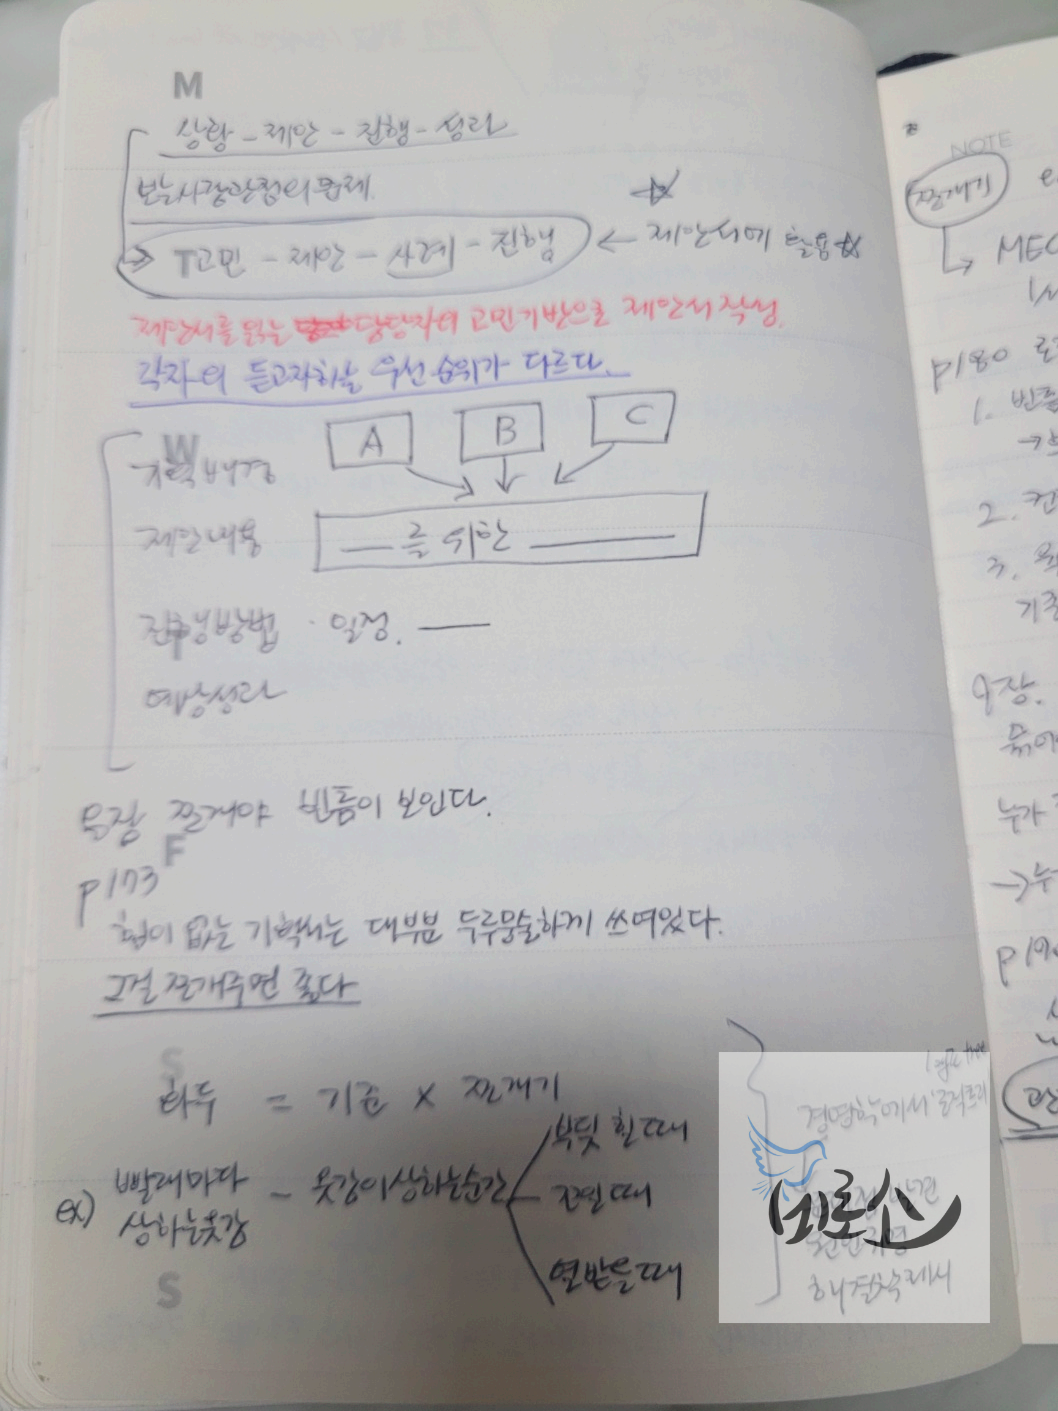 M
상황 - 제안 - 진행 - 성과
보는사람관점의 문제.
T
고민 - 제안 - 사례 - 진행 ← 제안서에 활용
제안서를 읽는 담당자의 고민기반으로 제안서 작성.
각자의 듣고자하는 우선순위가 다르다.
A B C
W
기획배경
제안내용
를 위한
진행방법 · 일정.
예상성과
8장 쪼개야 빈틈이 보인다.
F
p173
힘이 없는 기획서는 대부분 두루뭉술하게 쓰여있다.
그걸 쪼개주면 좋다
S
화두 = 기준 × 쪼개기
ex) 빨래마다 상하는옷감 - 옷감이상하는순간
부딪힐때
꼬일때
열받을때
S
logic tree
경영학에서 '로직트리'
원인규명
해결책제시
비로소
NOTE
쪼개기
MEC
p180
1. 빈틈
2. 컨
3.
기존
9장.
누가
→누
p19